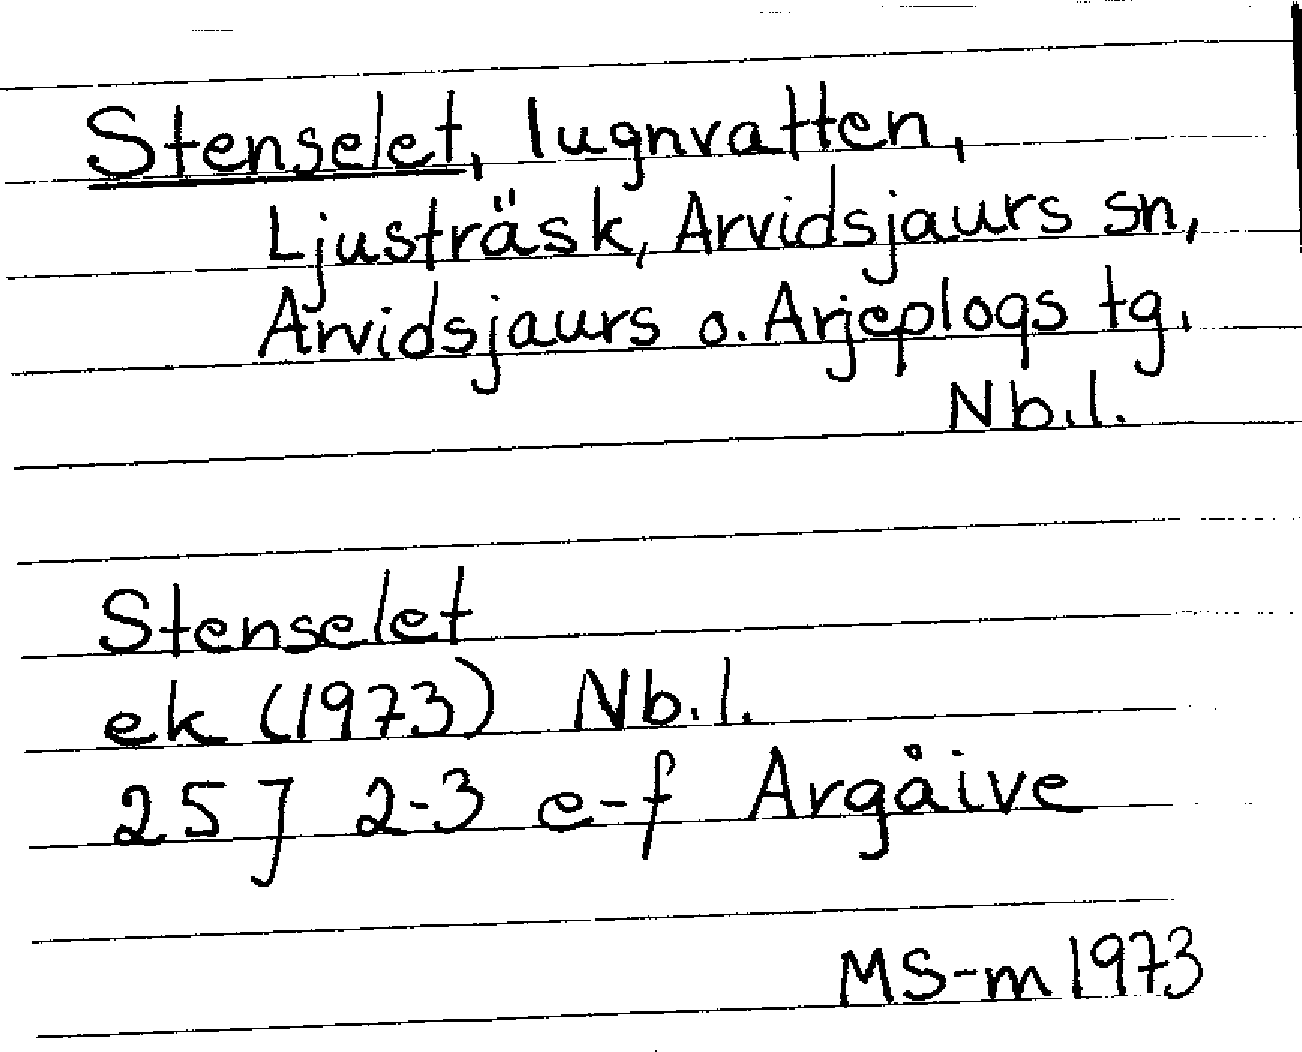 Stenselet, lugnvatten,
Ljusträsk, Arvidsjaurs sn,
Arvidsjaurs o. Arjeplogs tg,
Nb.l.
Stenselet
ek (1973) Nb.l.
25 J 2-3 e-f Argåive
MS-m 1973